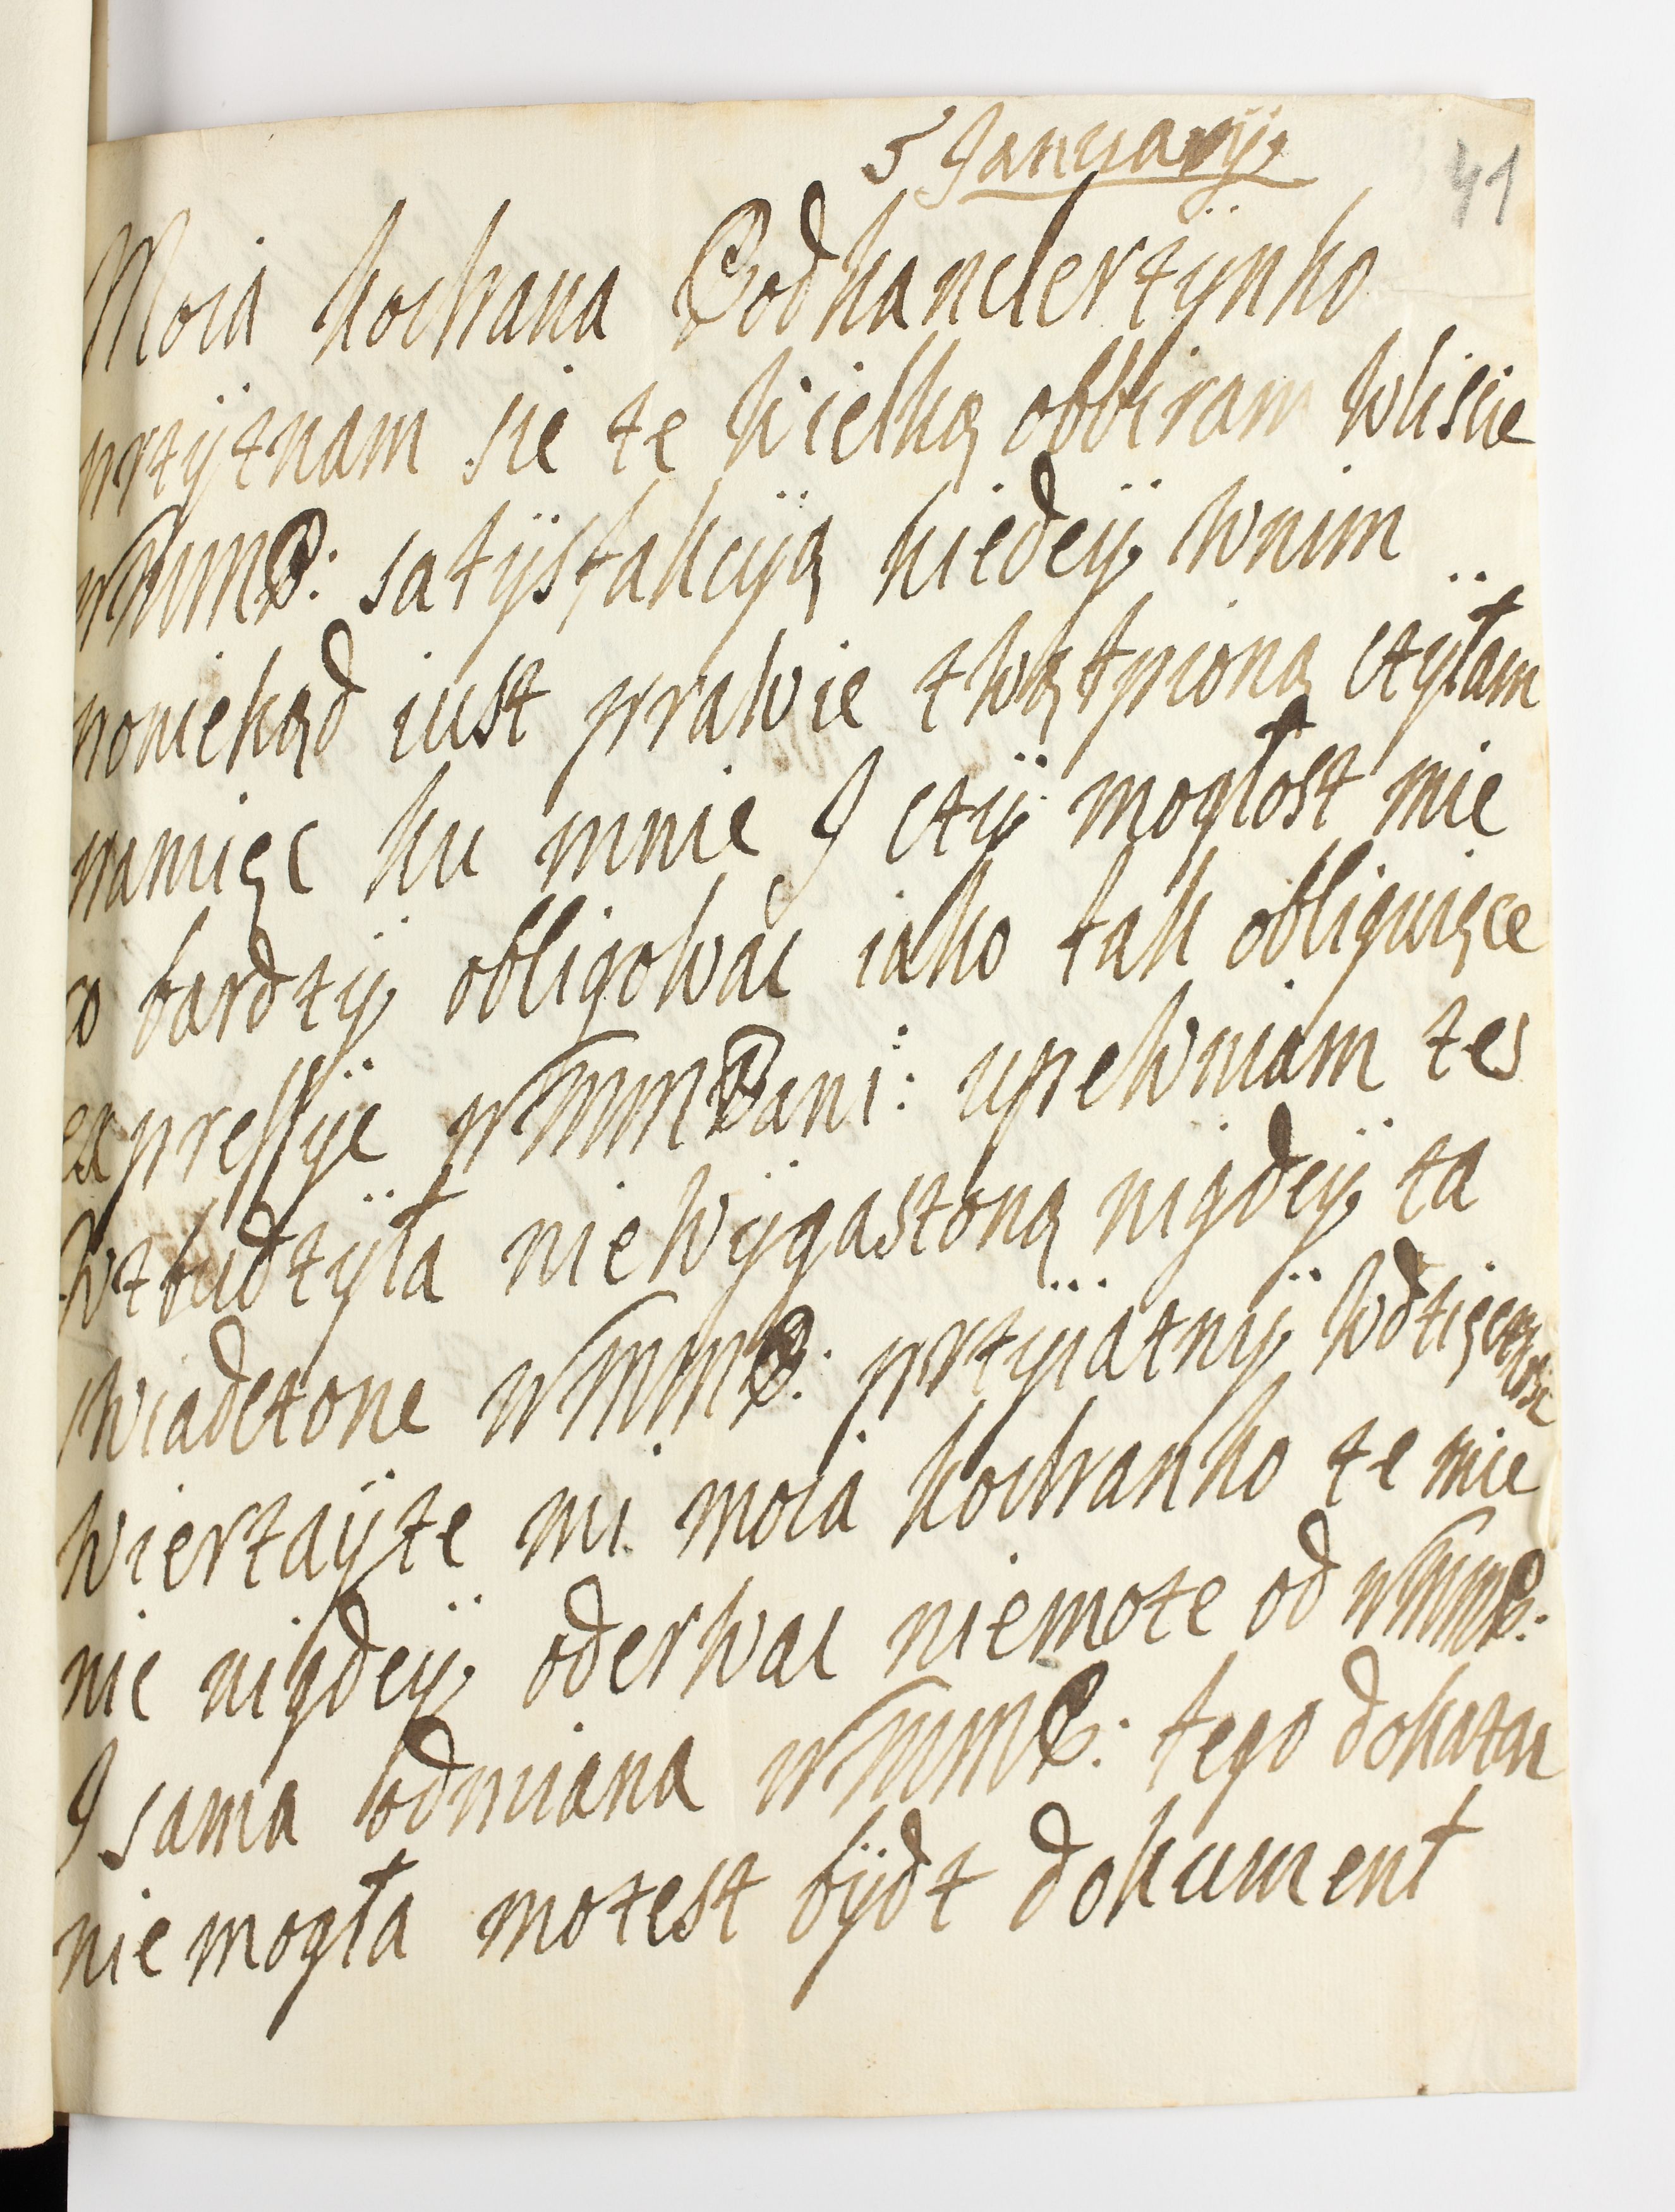 5 Januarÿ
41
Moia kochana Podkanclerzÿnko
przÿznam sie ze wielką obbiram wliscie
wmmP: satÿsfakcÿą kiedeÿ wnim
poniekąd iusz prawie zwątpioną czÿłam
pamięc ku mnie I czÿ mogłosz mie
co bardzÿ obligowac iako tak obliguiące
expressÿie wmmPani: upewniam zes
wzbudzÿła niewÿgaszoną nigdeÿ za
swiadczone wmmP: przÿiazny wdzięcznosc
wierzaÿze mi moia kochanko ze mie
nic nigdeÿ oderwac niemoze od wmmP:
I sama odmiana wmmP: tego dokazac
niemogła mozesz bÿdz dokument